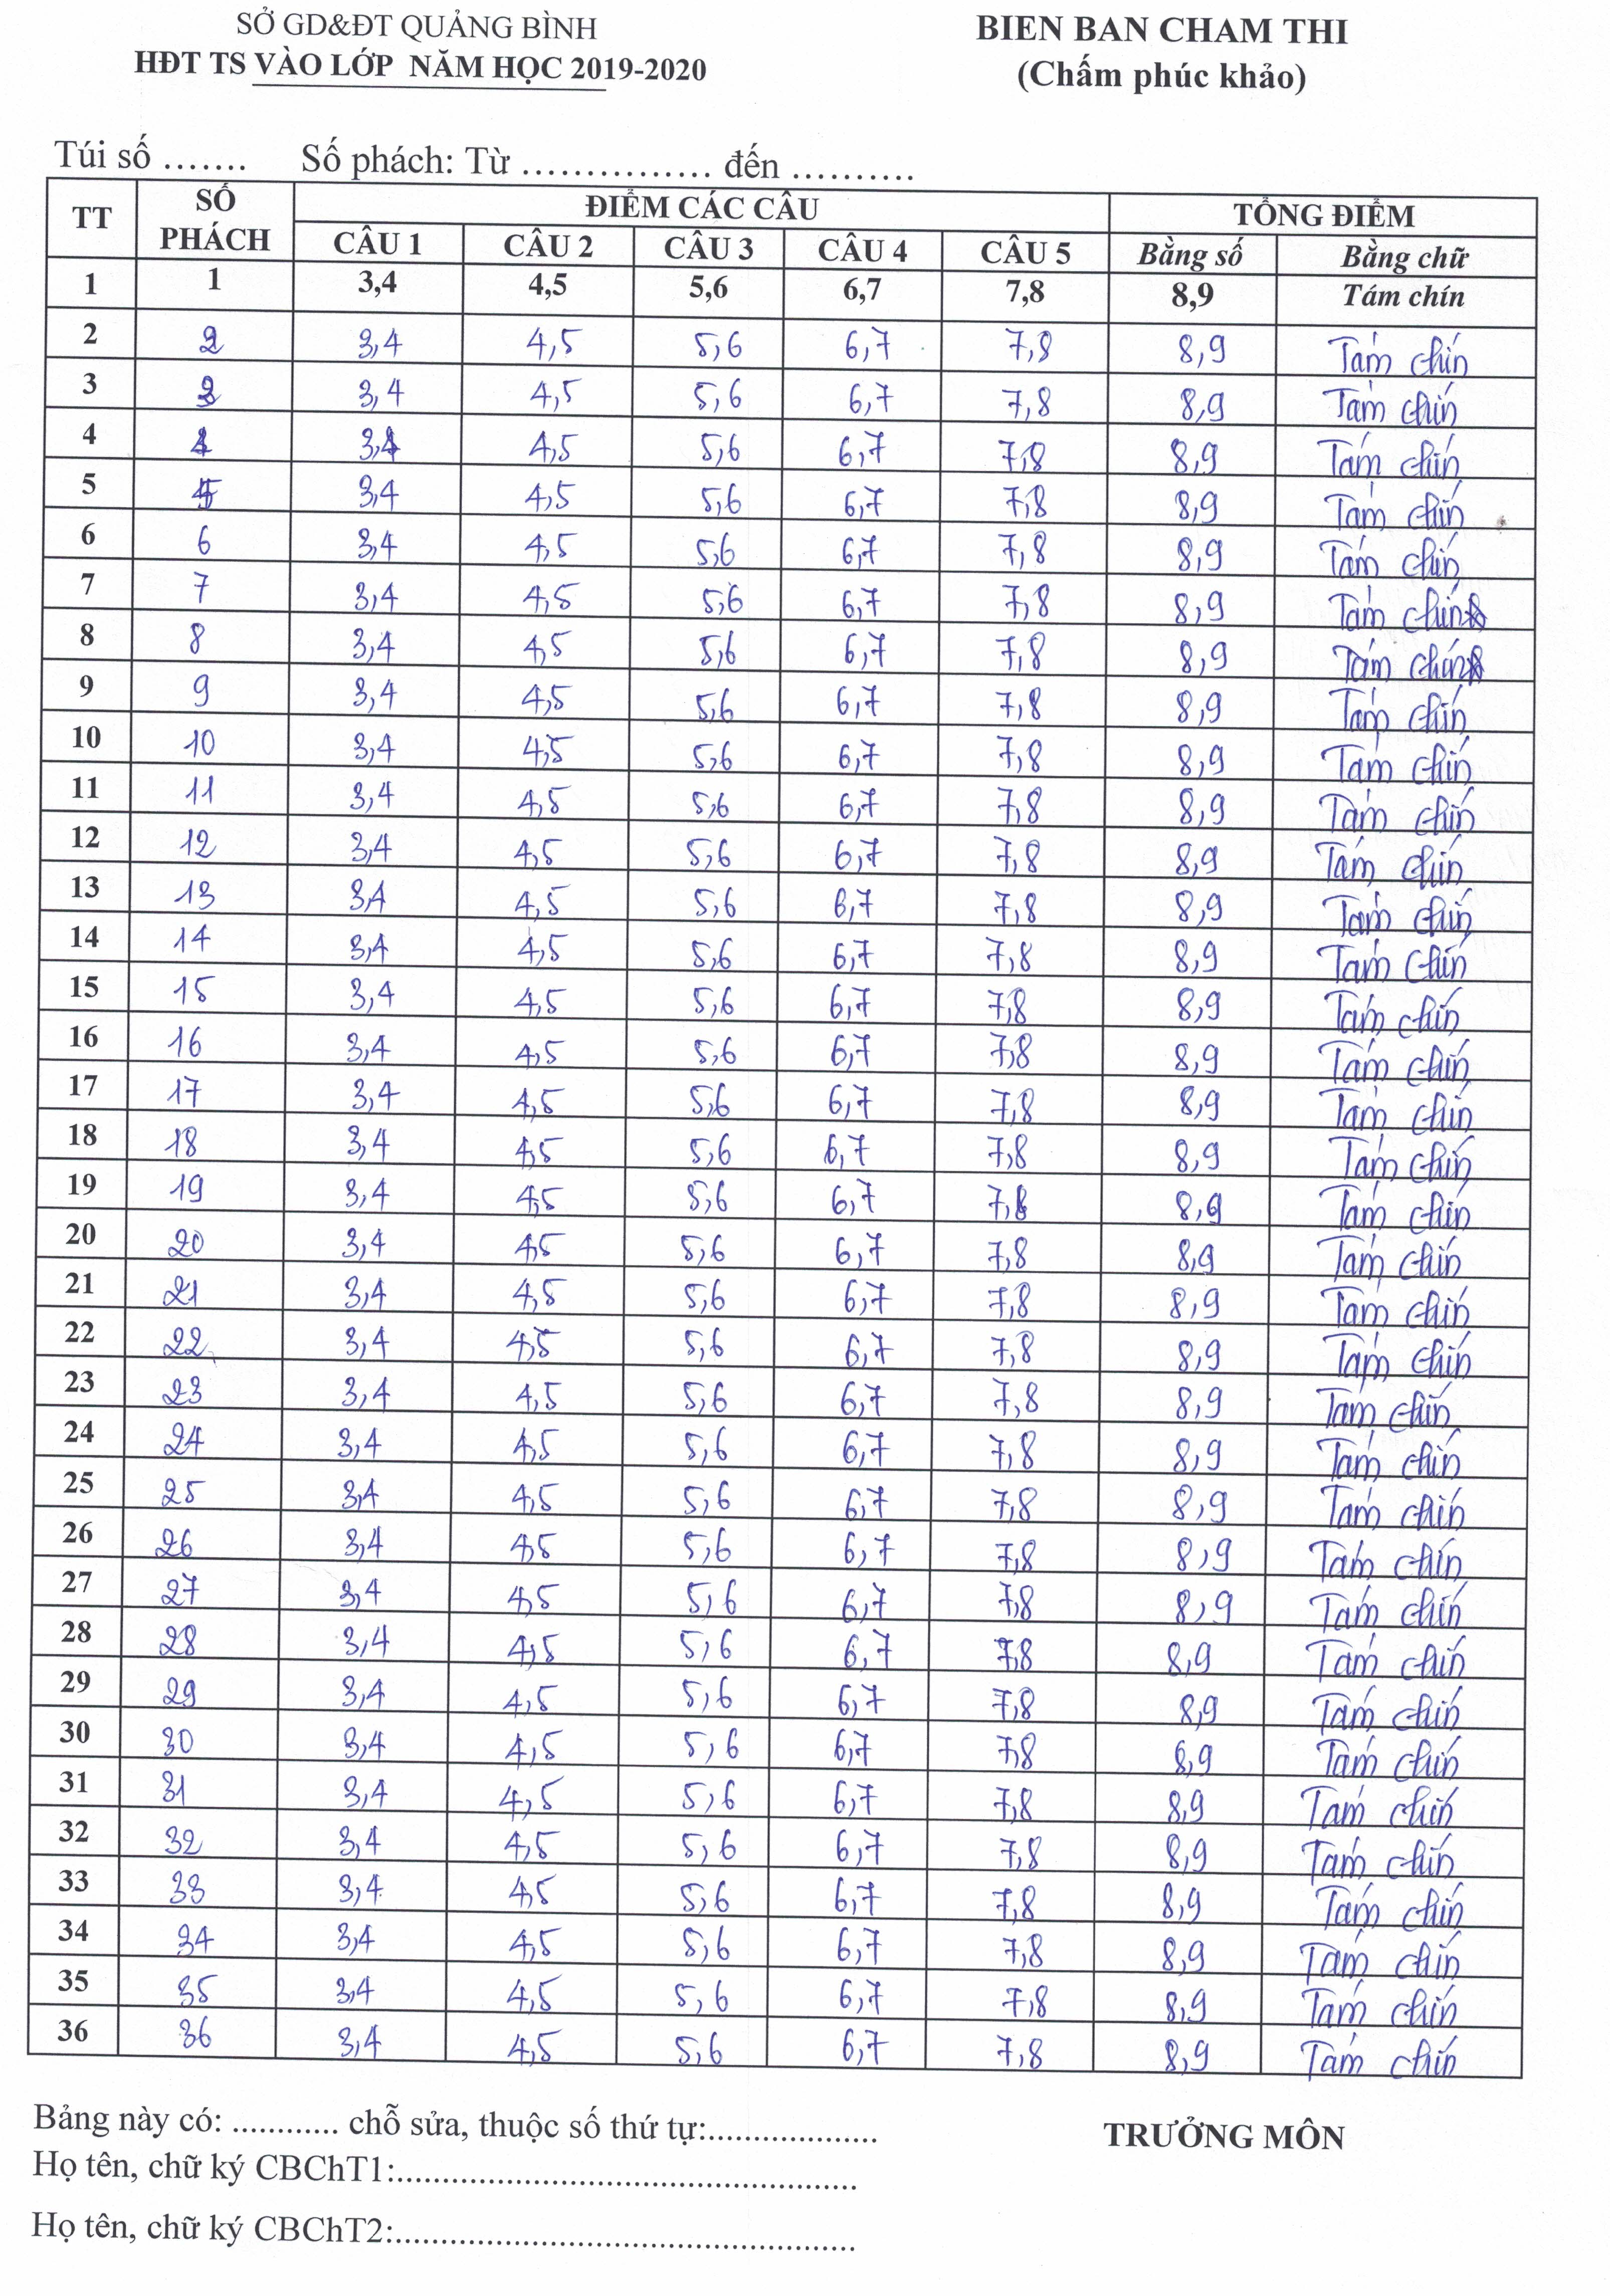 SỞ GD&ĐT QUẢNG BÌNH
HĐT TS VÀO LỚP NĂM HỌC 2019-2020
BIEN BAN CHAM THI
(Chấm phúc khảo)
Túi số ....... Số phách: Từ ................ đến ...........
TT SỐ PHÁCH ĐIỂM CÁC CÂU TỔNG ĐIỂM
CÂU 1 CÂU 2 CÂU 3 CÂU 4 CÂU 5 Bằng số Bằng chữ
1 1 3,4 4,5 5,6 6,7 7,8 8,9 Tám chín
2 2 3,4 4,5 5,6 6,7 7,8 8,9 Tám chín
3 3 3,4 4,5 5,6 6,7 7,8 8,9 Tám chín
4 4 3,4 4,5 5,6 6,7 7,8 8,9 Tám chín
5 5 3,4 4,5 5,6 6,7 7,8 8,9 Tám chín
6 6 3,4 4,5 5,6 6,7 7,8 8,9 Tám chín
7 7 3,4 4,5 5,6 6,7 7,8 8,9 Tám chín
8 8 3,4 4,5 5,6 6,7 7,8 8,9 Tám chín
9 9 3,4 4,5 5,6 6,7 7,8 8,9 Tám chín
10 10 3,4 4,5 5,6 6,7 7,8 8,9 Tám chín
11 11 3,4 4,5 5,6 6,7 7,8 8,9 Tám chín
12 12 3,4 4,5 5,6 6,7 7,8 8,9 Tám chín
13 13 3,4 4,5 5,6 6,7 7,8 8,9 Tám chín
14 14 3,4 4,5 5,6 6,7 7,8 8,9 Tám chín
15 15 3,4 4,5 5,6 6,7 7,8 8,9 Tám chín
16 16 3,4 4,5 5,6 6,7 7,8 8,9 Tám chín
17 17 3,4 4,5 5,6 6,7 7,8 8,9 Tám chín
18 18 3,4 4,5 5,6 6,7 7,8 8,9 Tám chín
19 19 3,4 4,5 5,6 6,7 7,8 8,9 Tám chín
20 20 3,4 4,5 5,6 6,7 7,8 8,9 Tám chín
21 21 3,4 4,5 5,6 6,7 7,8 8,9 Tám chín
22 22 3,4 4,5 5,6 6,7 7,8 8,9 Tám chín
23 23 3,4 4,5 5,6 6,7 7,8 8,9 Tám chín
24 24 3,4 4,5 5,6 6,7 7,8 8,9 Tám chín
25 25 3,4 4,5 5,6 6,7 7,8 8,9 Tám chín
26 26 3,4 4,5 5,6 6,7 7,8 8,9 Tám chín
27 27 3,4 4,5 5,6 6,7 7,8 8,9 Tám chín
28 28 3,4 4,5 5,6 6,7 7,8 8,9 Tám chín
29 29 3,4 4,5 5,6 6,7 7,8 8,9 Tám chín
30 30 3,4 4,5 5,6 6,7 7,8 8,9 Tám chín
31 31 3,4 4,5 5,6 6,7 7,8 8,9 Tám chín
32 32 3,4 4,5 5,6 6,7 7,8 8,9 Tám chín
33 33 3,4 4,5 5,6 6,7 7,8 8,9 Tám chín
34 34 3,4 4,5 5,6 6,7 7,8 8,9 Tám chín
35 35 3,4 4,5 5,6 6,7 7,8 8,9 Tám chín
36 36 3,4 4,5 5,6 6,7 7,8 8,9 Tám chín
Bảng này có: ............ chỗ sửa, thuộc số thứ tự:...................
TRƯỞNG MÔN
Họ tên, chữ ký CBChT1:...................................................
Họ tên, chữ ký CBChT2:...................................................